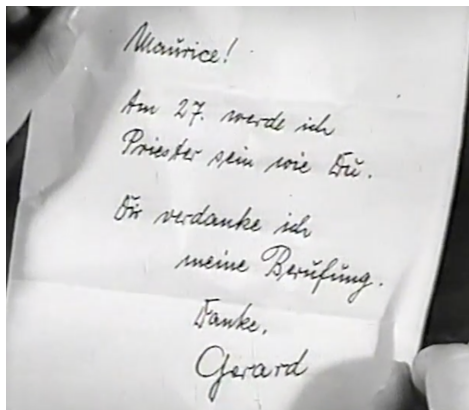 Maurice!
Am 27. werde ich
Priester sein wie Du.
Dir verdanke ich
meine Berufung.
Danke,
Gerard